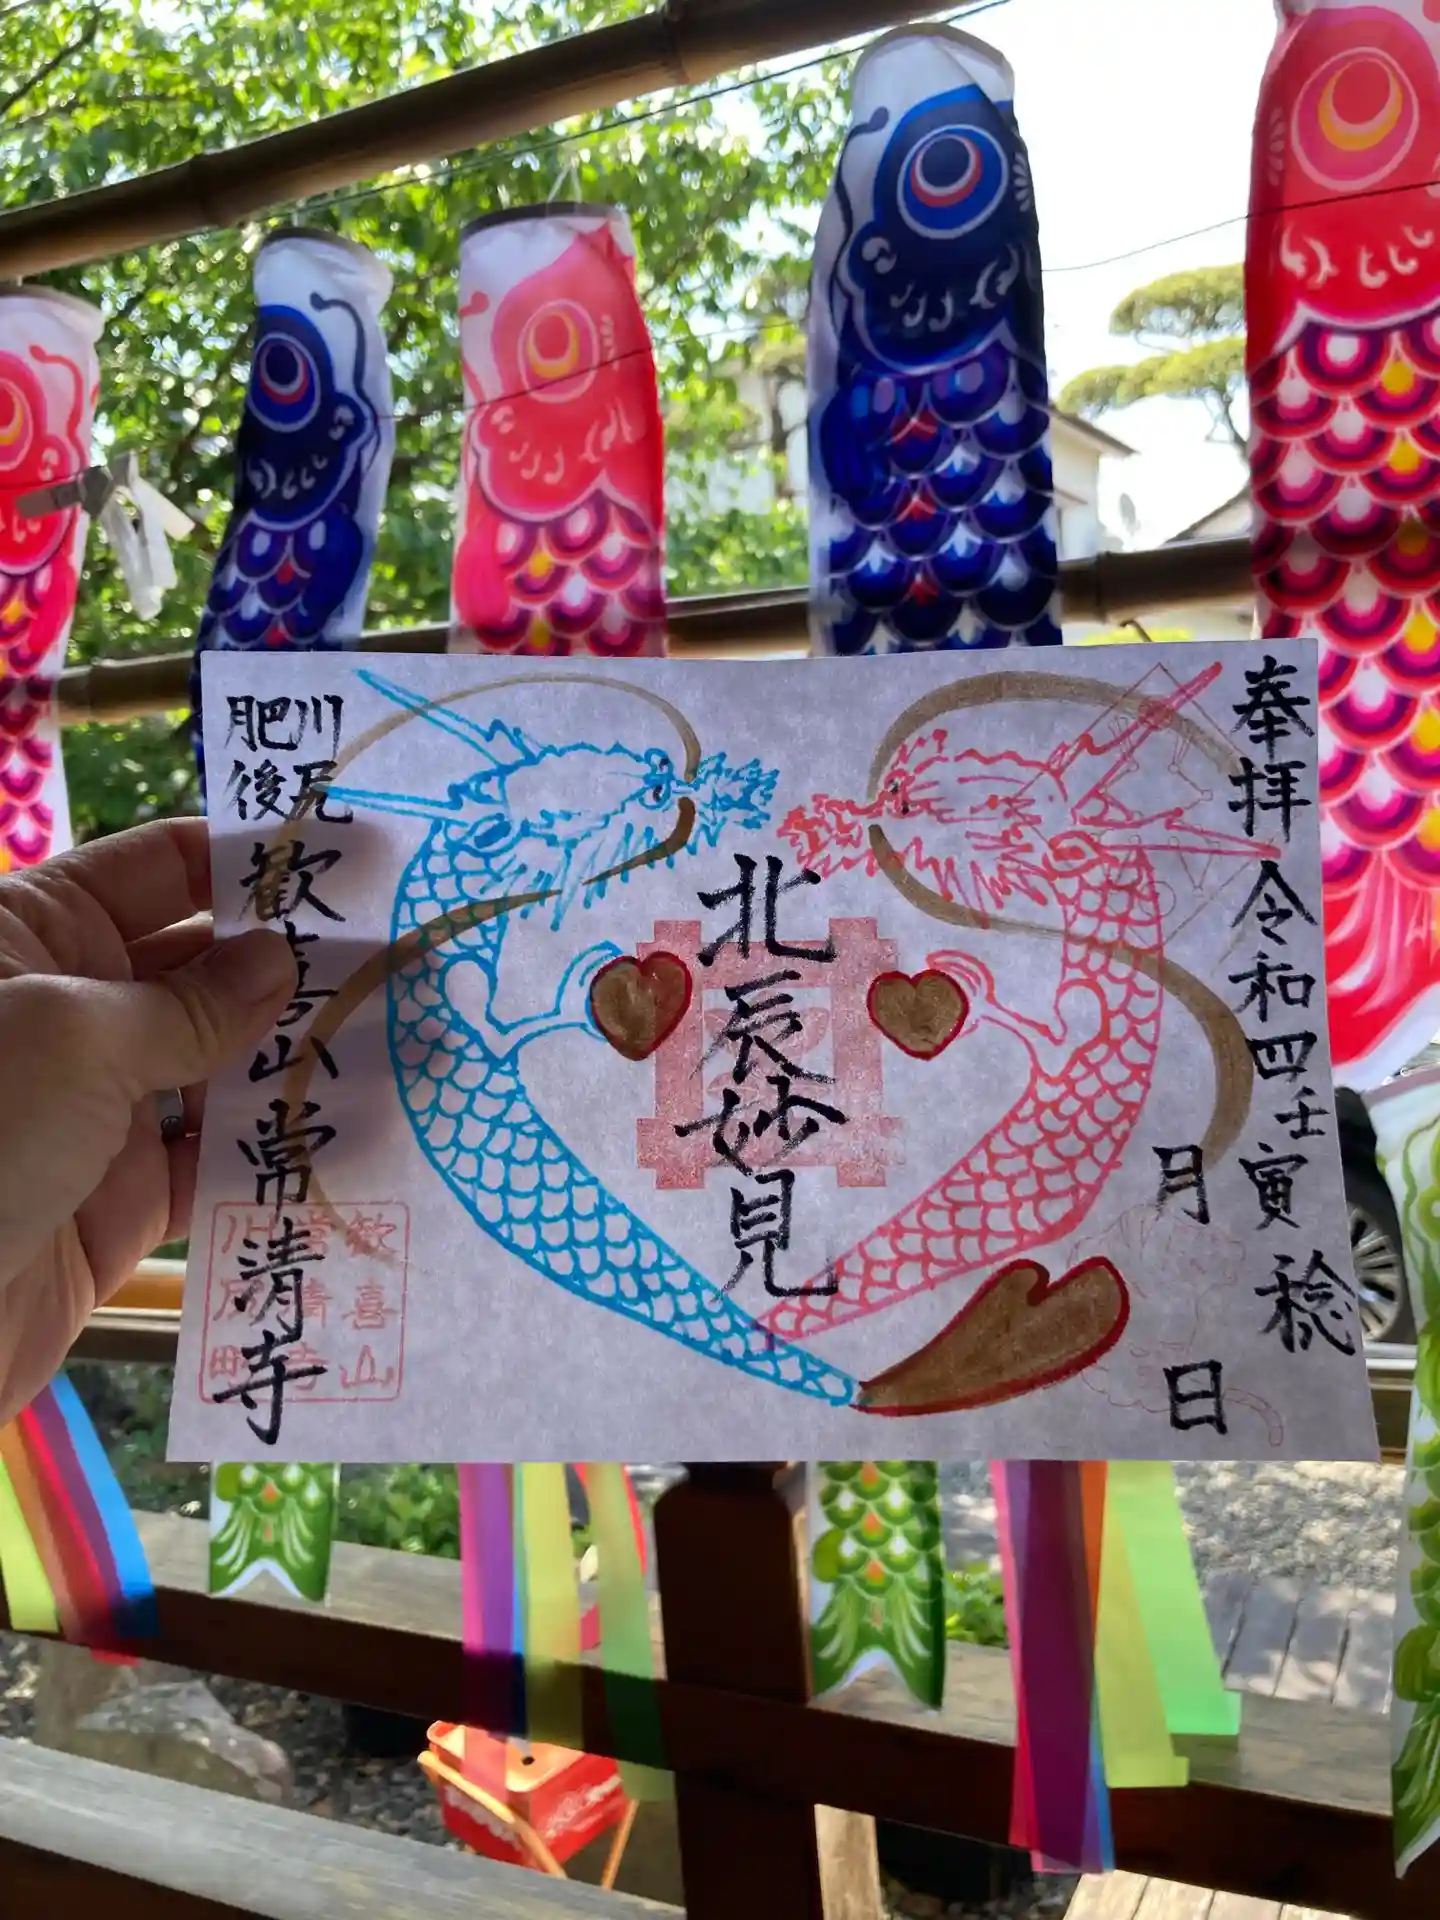 奉拝 令和四壬寅 稔
月 日
北辰妙見
川尻
肥後
歓喜山 常清寺
歓喜山
常清寺
川尻町